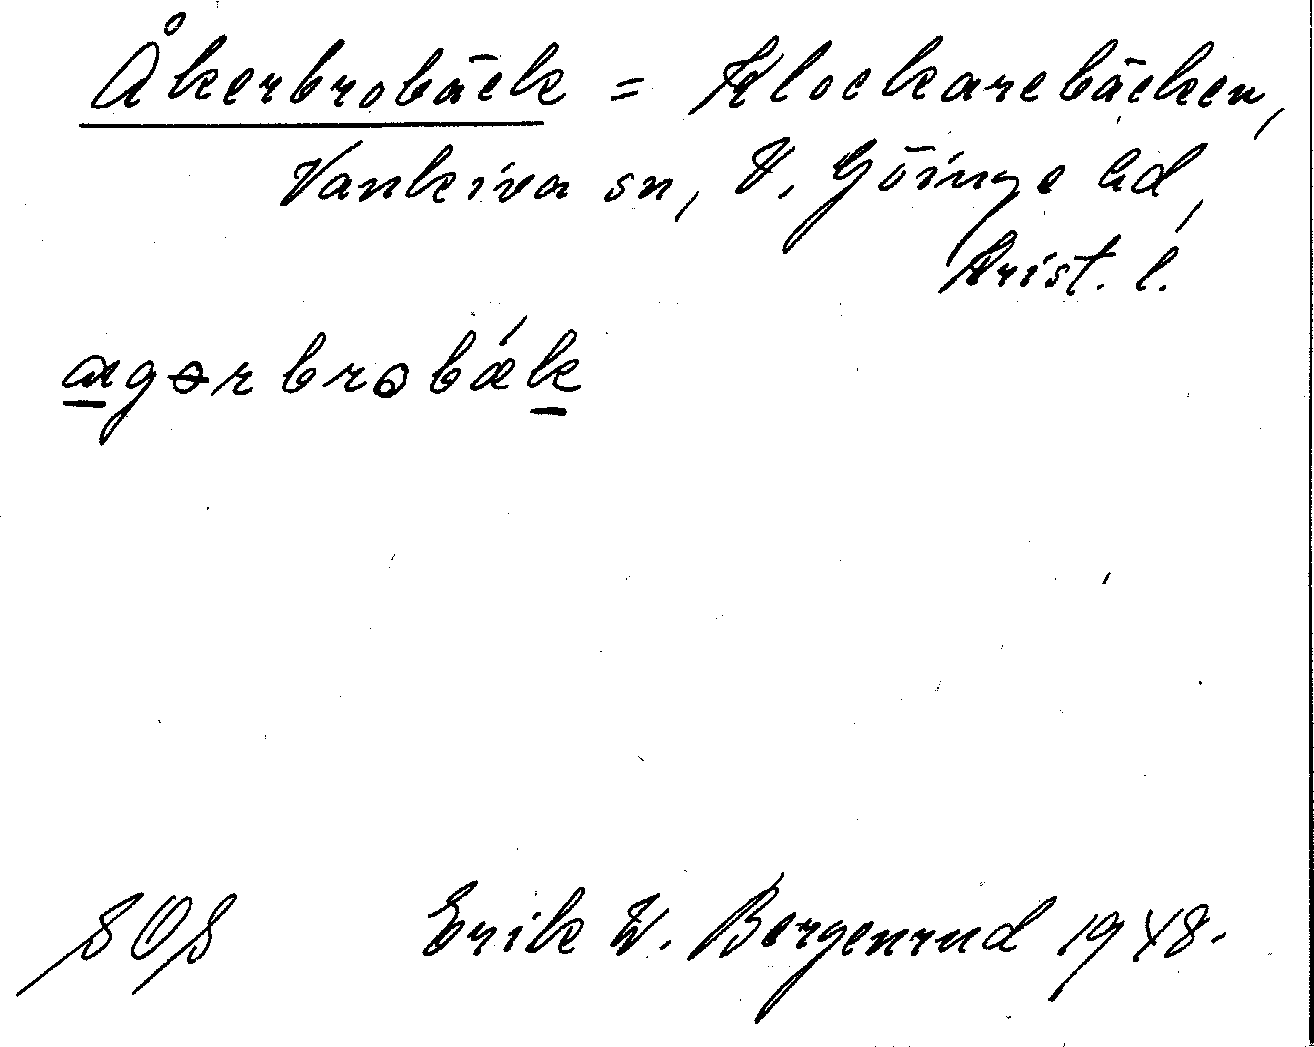 Åkerbrobäck = Klockarebäcken,
Vankiva sn, V. Göinge hd,
Krist. l.
agərbrobǽk
SOS Erik W. Bergenrud 1948.